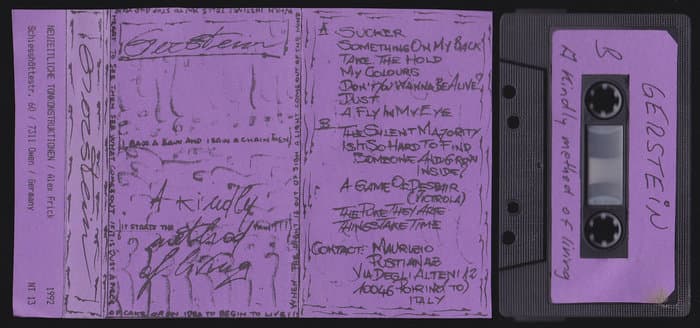 NEUZEITLICHE TONKONSTRUKTIONEN / Alex Frick
Schiesshüttestr. 60 / 7311 Owen / Germany
1992
NT 13
Gerstein
Gerstein
A Kindly
method
of living
OF CAKE OR AN IDEA TO BEGIN TO LIVE!!
A SUCKER
SOMETHING ON MY BACK
TAKE THE HOLD
MY COLOURS
DON'T YOU WANNA BE ALIVE?
DUST
A FLY IN MY EYE
B THE SILENT MAJORITY
IS IT SO HARD TO FIND
SOMEONE AND GROW
INSIDE?
A GAME OF DESPAIR
(VICTROLA)
THE PUKE THEY ARE
THINGS TAKE TIME
CONTACT: MAURIZIO
PUSTIANAZ
VIA DEGLI ALTENI 12
10046 POIRINO (TO)
ITALY
GERSTEIN
B
A Kindly method of living